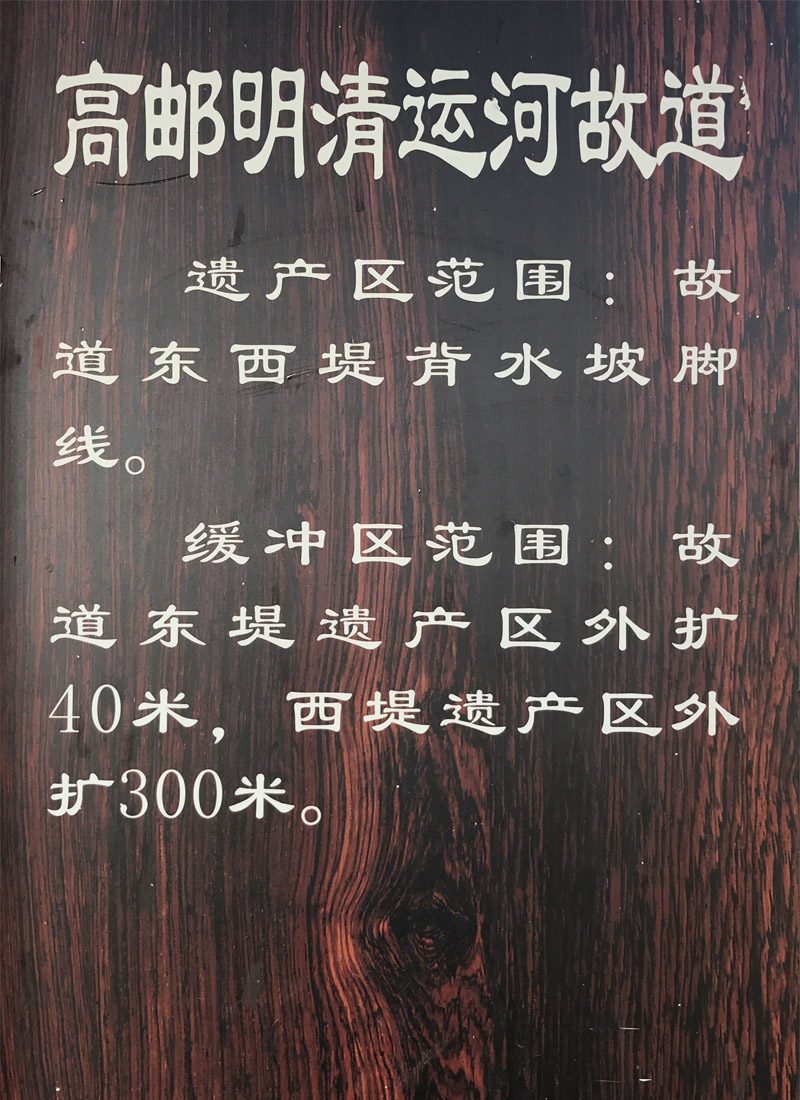 高邮明清运河故道
遗产区范围：故
道东西堤背水坡脚
线。
缓冲区范围：故
道东堤遗产区外扩
40米，西堤遗产区外
扩300米。